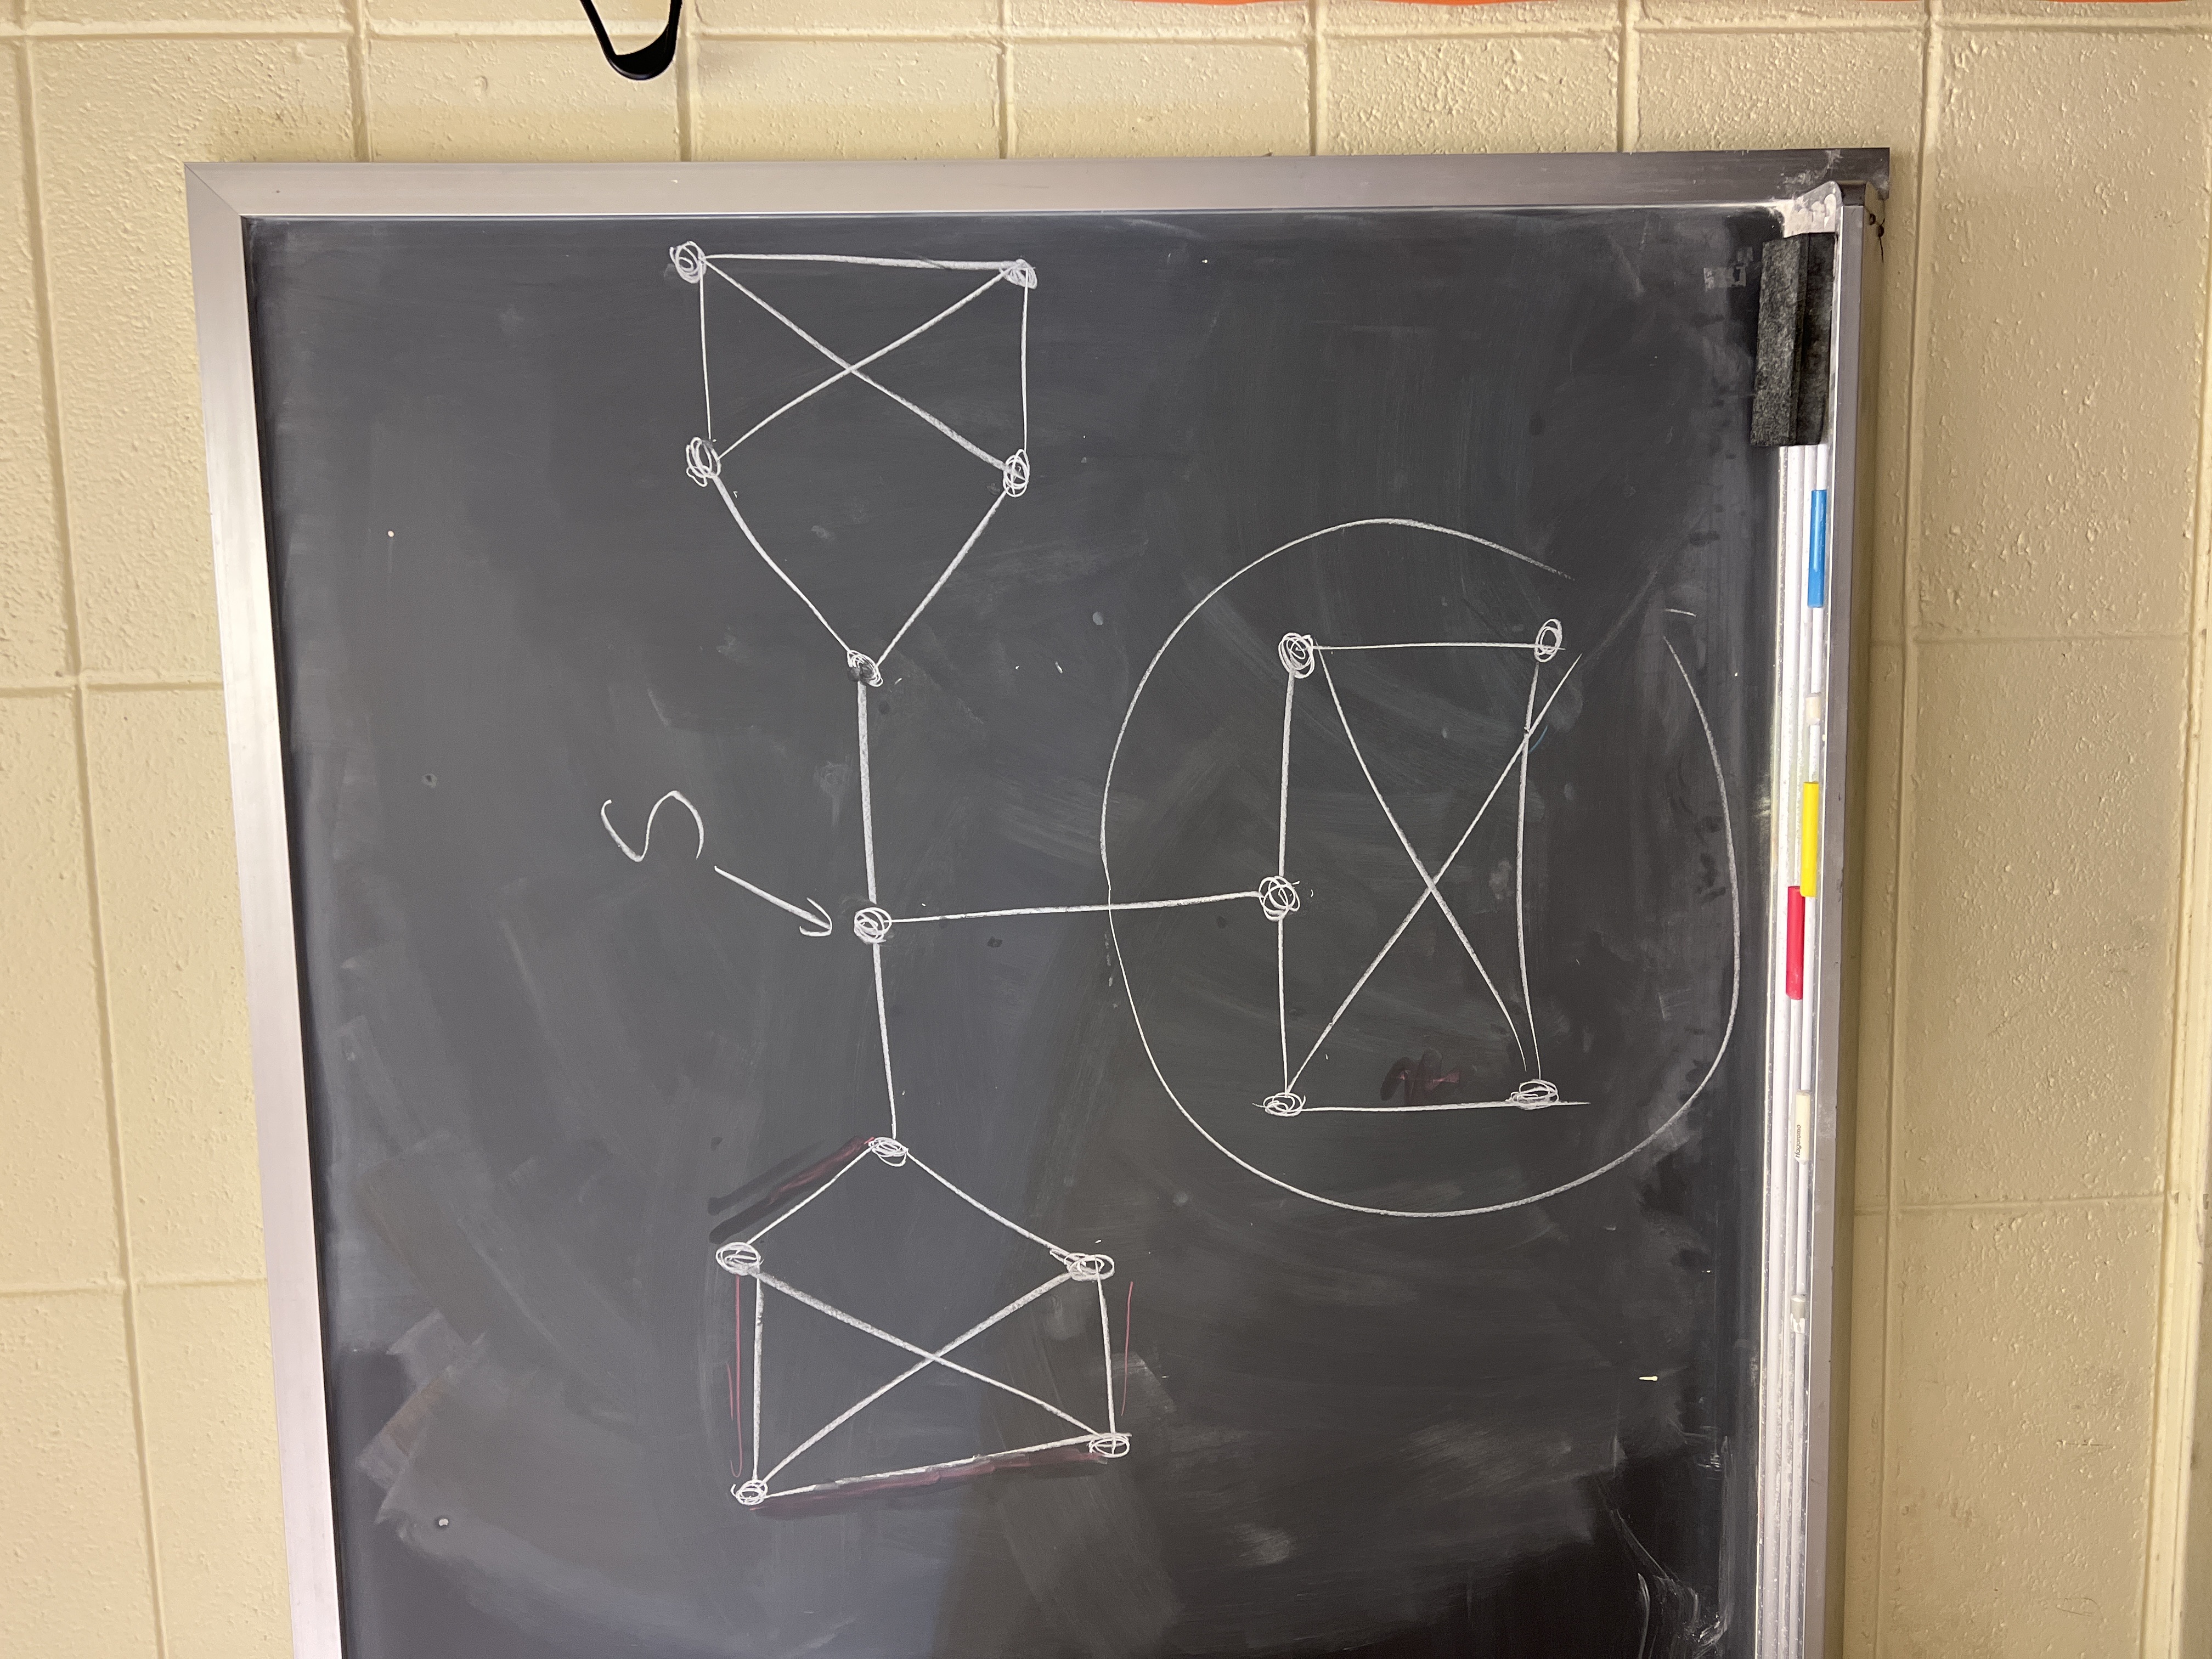 S
Hagoromo